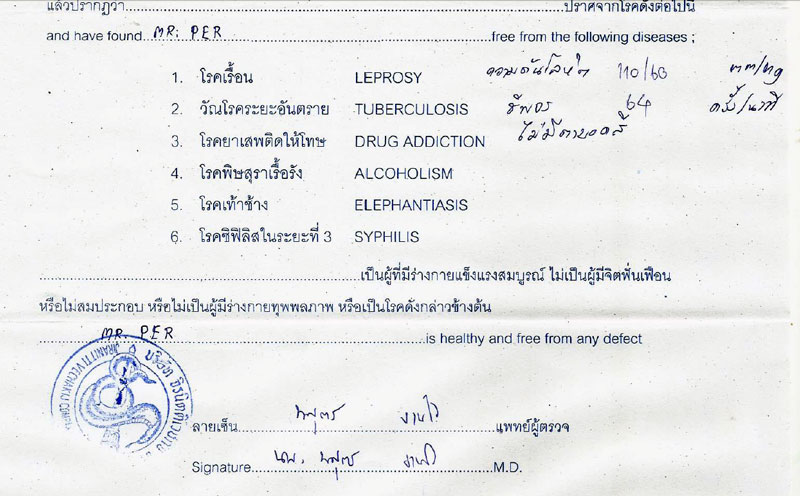 แล้วปรากฏว่า ปราศจากโรคดังต่อไปนี้
and have found MR. PER free from the following diseases ;
1. โรคเรื้อน LEPROSY ความดันโลหิต 110/60
2. วัณโรคระยะอันตราย TUBERCULOSIS ชีพจร 64 ครั้ง/นาที
3. โรคยาเสพติดให้โทษ DRUG ADDICTION ไม่มีตาบอดสี
4. โรคพิษสุราเรื้อรัง ALCOHOLISM
5. โรคเท้าช้าง ELEPHANTIASIS
6. โรคซิฟิลิสในระยะที่ 3 SYPHILIS
เป็นผู้ที่มีร่างกายแข็งแรงสมบูรณ์ ไม่เป็นผู้มีจิตฟั่นเฟือน
หรือไม่สมประกอบ หรือไม่เป็นผู้มีร่างกายทุพพลภาพ หรือเป็นโรคดังกล่าวข้างต้น
MR. PER is healthy and free from any defect
บริษัท
ลายเซ็น แพทย์ผู้ตรวจ
Signature นพ. M.D.